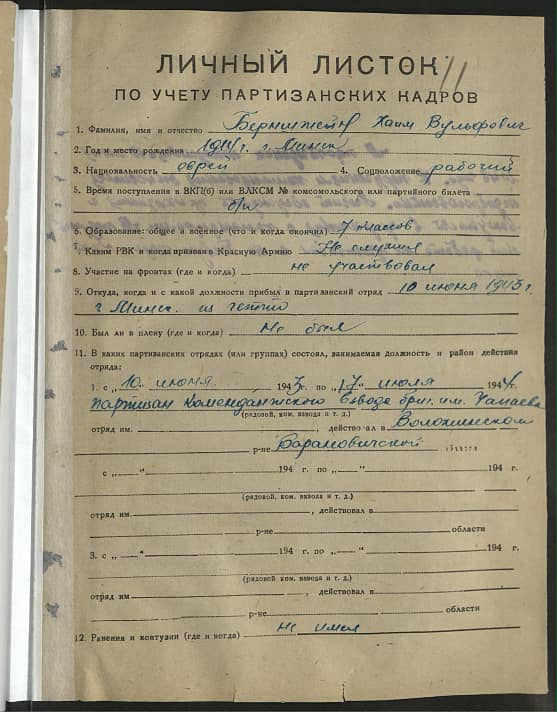 ЛИЧНЫЙ ЛИСТОК 11
ПО УЧЕТУ ПАРТИЗАНСКИХ КАДРОВ
1. Фамилия, имя и отчество Хаим Вульфович
2. Год и место рождения 1914 г. г. Минск
3. Национальность еврей 4. Соцположение рабочий
5. Время поступления в ВКП(б) или ВЛКСМ № комсомольского или партийного билета
б/п
6. Образование: общее и военное (что и когда окончил) 7 классов
7. Каким РВК и когда призван в Красную Армию Не служил
8. Участие на фронтах (где и когда) не участвовал
9. Откуда, когда и с какой должности прибыл в партизанский отряд 10 июня 1943 г.
г. Минск из гетто
10. Был ли в плену (где и когда) Не был
11. В каких партизанских отрядах (или группах) состоял, занимаемая должность и район действия
отряда:
1. с „10 июня 1943 г. по „17“ июля 1944 г.
партизан Комендантского взвода бриг. им. Чапаева
(рядовой, ком. взвода и т. д.)
отряд им. , действовал в Воложинском
р-не Барановичской области
с „ “ 194 г. по „ “ 194 г.
(рядовой, ком. взвода и т. д.)
отряд им. , действовал в
р-не области
3. с „ “ 194 г. по „ “ 194 г.
(рядовой, ком. взвода и т. д.)
отряд им. , действовал в
р-не области
12. Ранения и контузии (где и когда) не имел